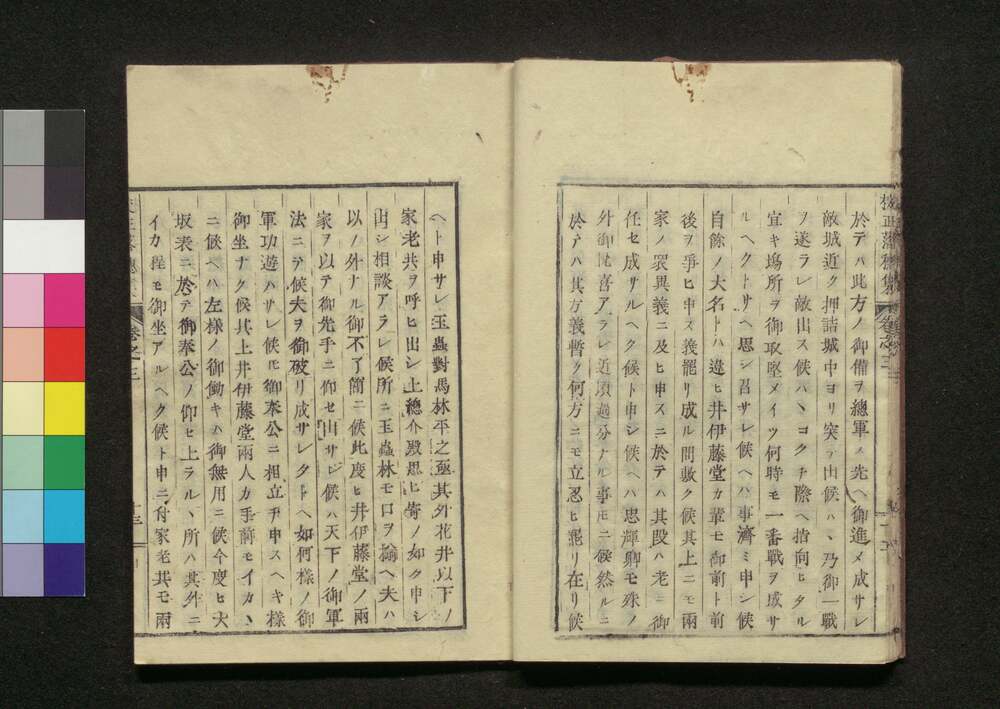 校正藩翰譜
於テハ此方ノ御備ヲ總軍ノ先ヘ御進メ成サレ
敵城近ク押詰城中ヨリ突テ出候ハヽ乃御一戰
ヲ遂ラレ敵出ス候ハヽヨクチ際ヘ指向ヒタル
宜キ塲所ヲ御取堅メイツ何時モ一番戰ヲ成サ
ルヘクトサヘ思シ召サレ候ヘハ事濟ミ申シ候
自餘ノ大名トハ違ヒ井伊藤堂カ輩モ御前ト前
後ヲ爭ヒ申ス義罷リ成ル間敷ク候其上ニモ兩
家ノ衆異義ニ及ヒ申スニ於テハ其段ハ老ニ御
任セ成サルヘク候ト申シ候ヘハ忠輝卿モ殊ノ
外御悅喜アラレ近頃過分ナル事モニ候然ルニ
於テハ其方義暫ク何方ニモ立忍ヒ罷リ在リ候
ヘト申サレ玉蟲對馬林平之亟其外花井以下ノ
家老共ヲ呼ヒ出シ上總介殿思ヒ寄ノ如ク申シ
出シ相談アラレ候所ニ玉蟲林モ口ヲ揃ヘ夫ハ
以ノ外ナル御不了簡ニ候此度ヒ井伊藤堂ノ兩
家ヲ以テ御先手ニ仰セ出サレ候ハ天下ノ御軍
法ニテ候夫ヲ御破リ成サレタトヘ如何樣ノ御
軍功遊ハサレ候モ御奉公ニ相立チ申スヘキ樣
御坐ナク候其上井伊藤堂兩人カ手前モイカヽ
ニ候ヘハ左樣ノ御働キハ御無用ニ候今度ヒ大
坂表ニ於テ御奉公ノ仰セ上ラルヽ所ハ其外ニ
イカ程モ御坐アルヘク候ト申ニ付家老共モ兩
卷之三